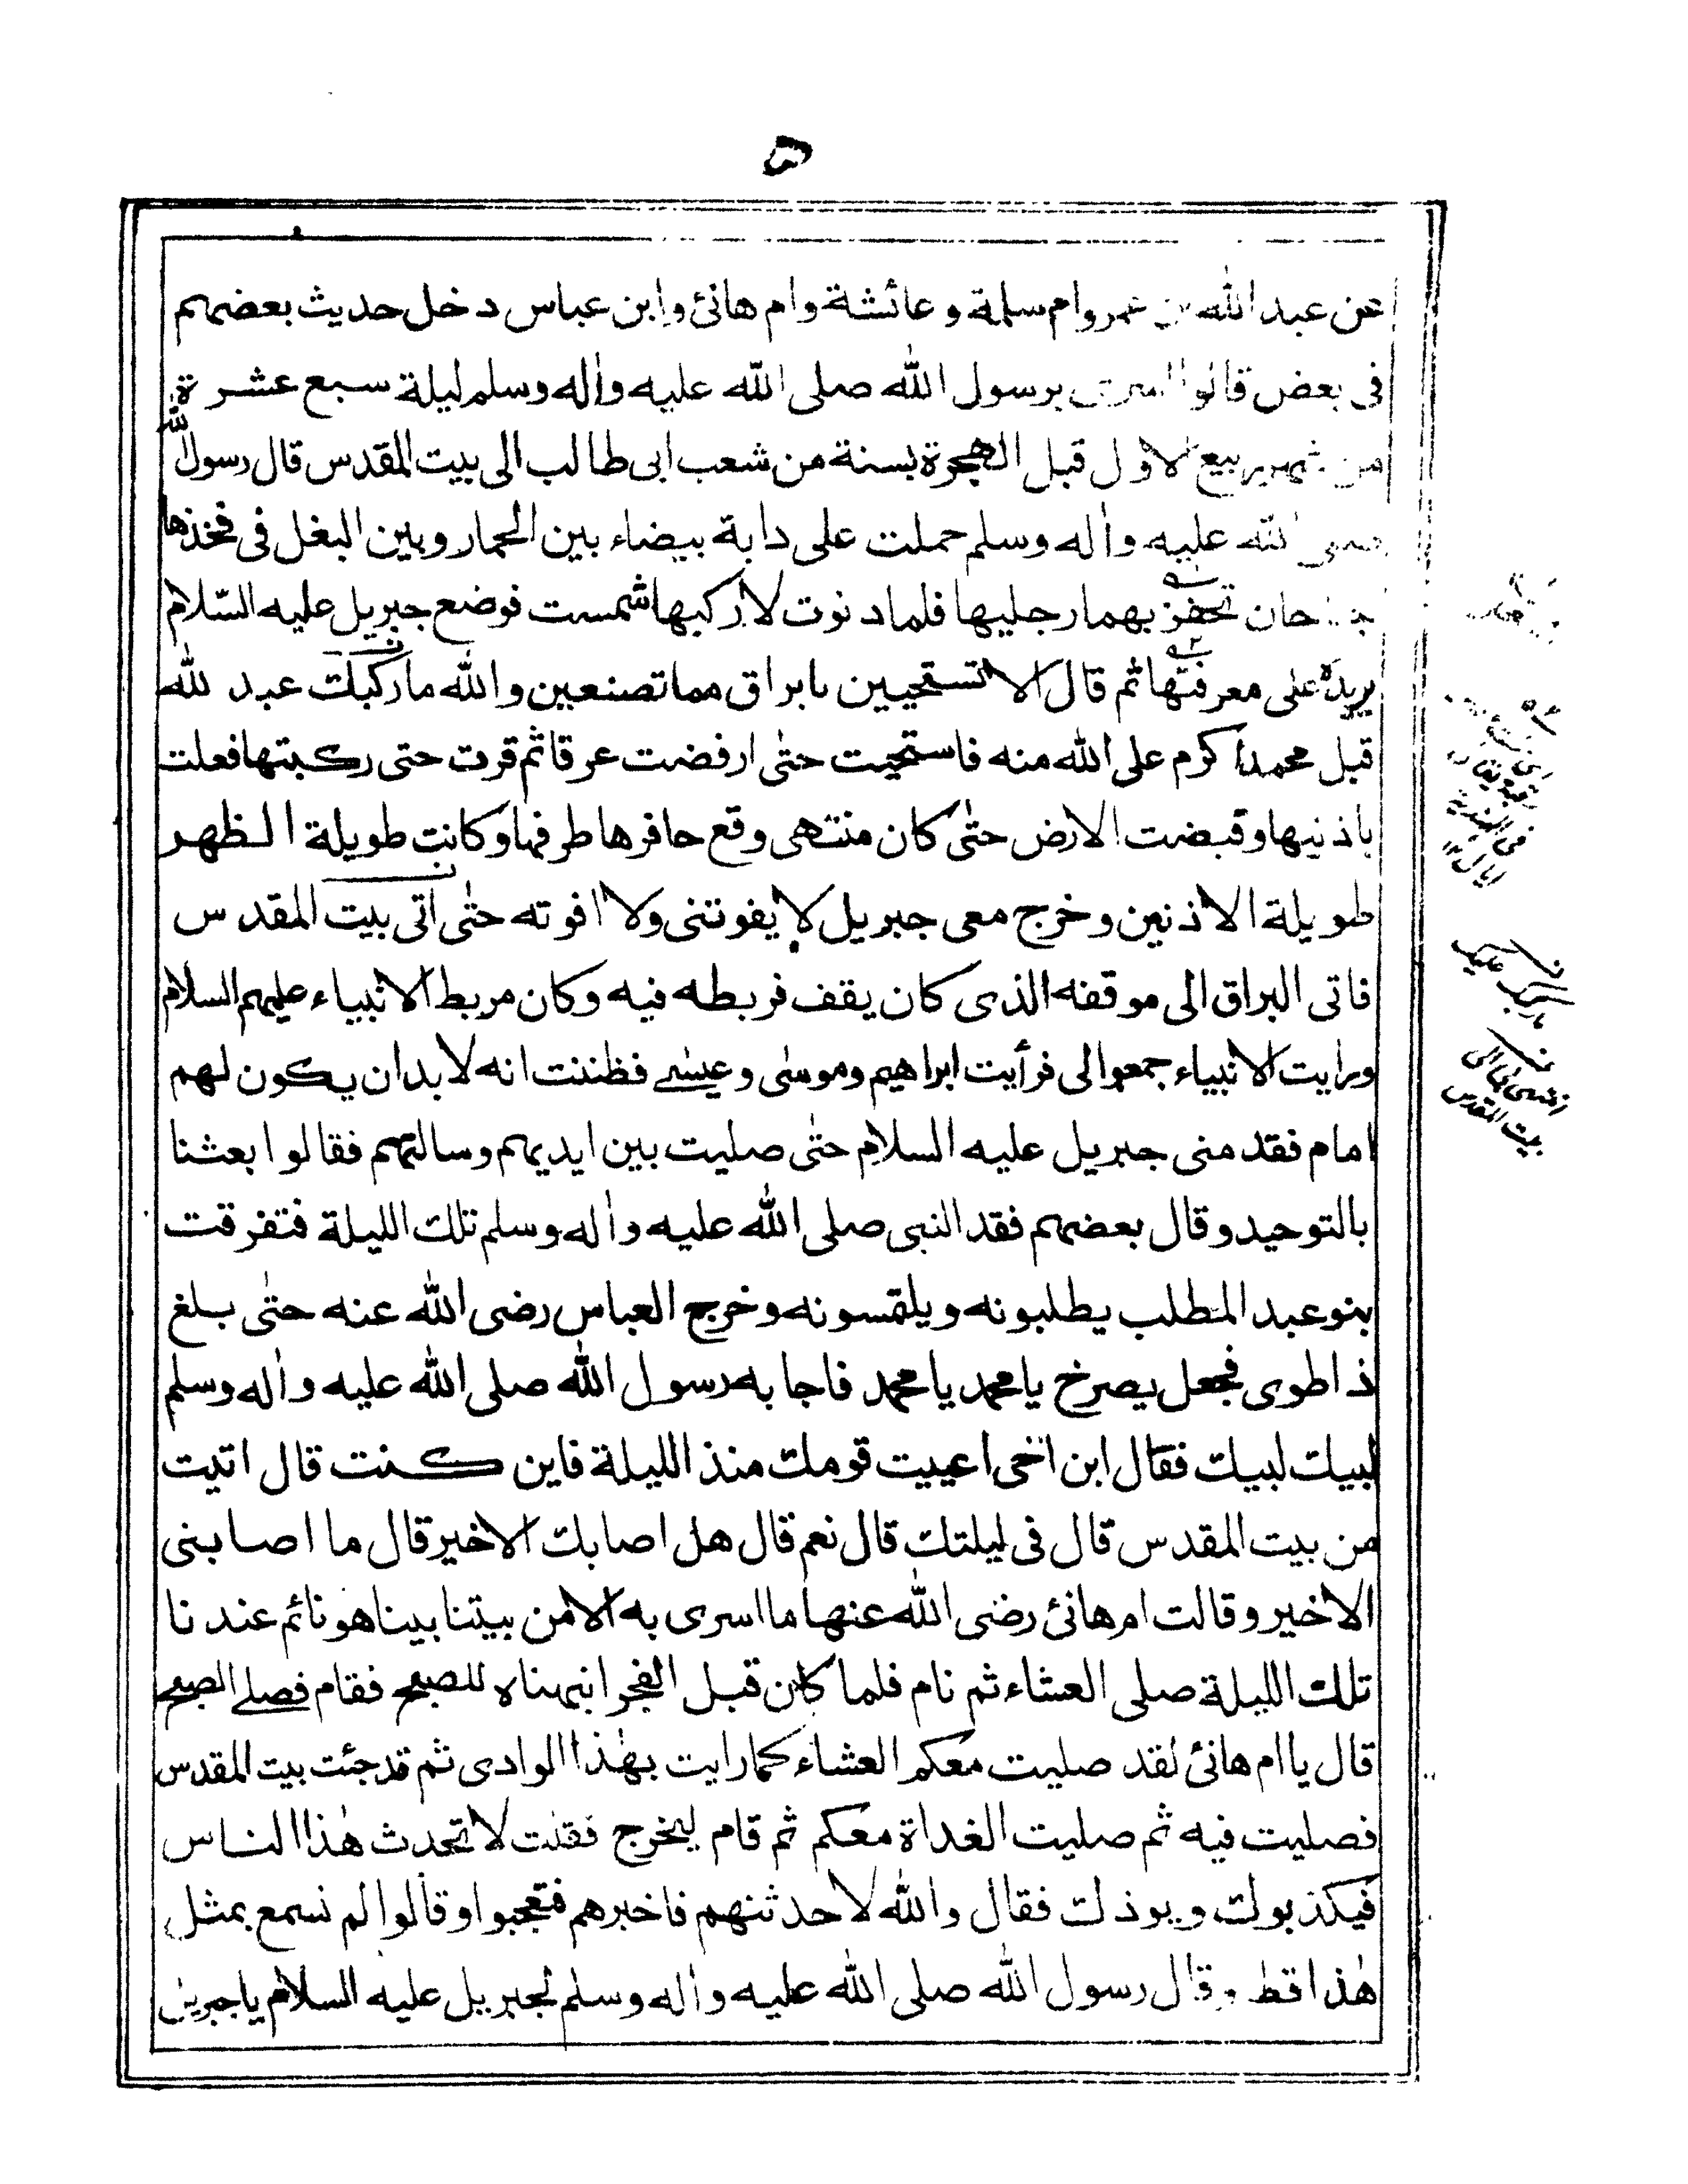 ٥
عن عبد الله بن عمرو ام سلمة و عائشة و ام هانئ و ابن عباس دخل حديث بعضهم
فى بعض قالوا اسرى برسول الله صلى الله عليه واٰله وسلم ليلة سبع عشرة
من شهر ربيع الاول قبل الهجرة بسنة من شعب ابى طالب الى بيت المقدس قال رسول الله
صلى الله عليه واٰله وسلم حملت على دابة بيضاء بين الحمار وبين البغل فى فخذها
جناحان تحفز بهما رجليها فلما دنوت لاركبها شمست فوضع جبريل عليه السّلام
يده على معرفتها ثم قال الا تستحيين يا براق مما تصنعين والله ما ركبك عبد لله
قبل محمد اكرم على الله منه فاستحيت حتىٰ ارفضت عرقا ثم قرت حتى ركبتها فعلت
باذنيها وقبضت الارض حتىٰ كان منتهى وقع حافرها طرفها وكانت طويلة الظهر
طويلة الاذنين وخرج معى جبريل لا يفوتنى ولا افوته حتىٰ اتى بيت المقدس
فاتى البراق الى موقفه الذى كان يقف فربطه فيه وكان مربط الانبياء عليهم السلام
ورايت الانبياء جمعوا لى فرأيت ابراهيم وموسٰى وعيسے فظننت انه لا بد ان يكون لهم
امام فقدمنى جبريل عليه السلام حتٰى صليت بين ايديهم وسالتهم فقالوا بعثنا
بالتوحيد وقال بعضهم فقد النبى صلى الله عليه واٰله وسلم تلك الليلة فتفرقت
بنو عبد المطلب يطلبونه ويلتمسونه وخرج العباس رضى الله عنه حتٰى بلغ
ذا طوى فجعل يصرخ يا محمد يا محمد فاجابه رسول الله صلى الله عليه واٰله وسلم
لبيك لبيك فقال ابن اخى اعييت قومك منذ الليلة فاين كنت قال اتيت
من بيت المقدس قال فى ليلتك قال نعم قال هل اصابك الا خير قال ما اصابنى
الا خير وقالت ام هانئ رضى الله عنها ما اسرى به الا من بيتنا بينا هو نائم عندنا
تلك الليلة صلى العشاء ثم نام فلما كان قبل الفجر انبهناه للصبح فقام فصلے الصبح
قال يا ام هانئ لقد صليت معكم العشاء كما رايت بهٰذا الوادى ثم قد جئت بيت المقدس
فصليت فيه ثم صليت الغداة معكم ثم قام ليخرج فقلت لا تحدث هٰذا الناس
فيكذبوك ويوذك فقال والله لاحدثنهم فاخبرهم فتعجبوا وقالوا لم نسمع بمثل
هٰذا قط وقال رسول الله صلى الله عليه واٰله وسلم لجبريل عليه السلام يا جبريل
انتهى بى الى
بيت المقدس